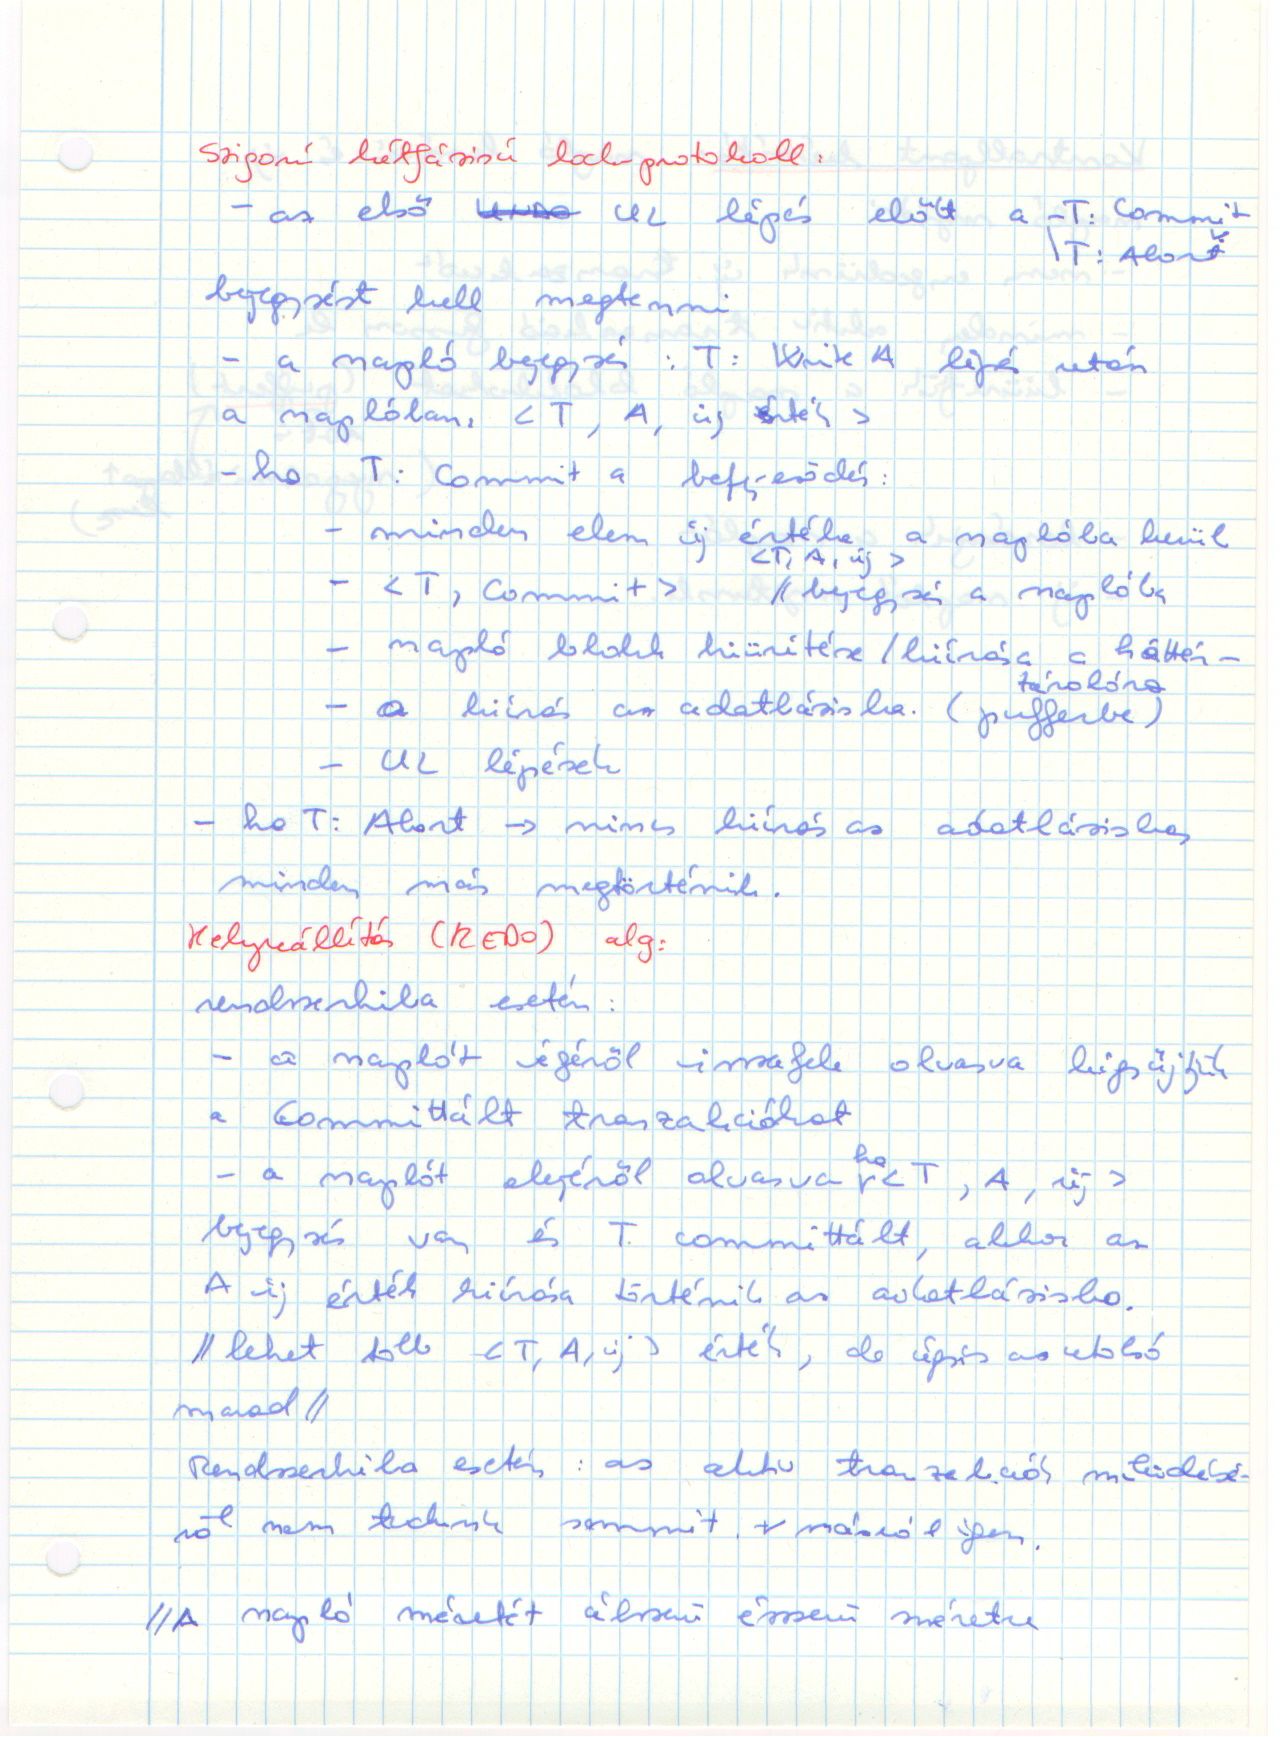 Szigorú kétfázisú lock protokoll:
- az első UL lépés előtt a - T: Commit
\ T: Abort
bejegyzést kell megtenni
- a napló bejegyzés : T: Write A lépés után
a naplóban: < T, A, új érték >
- ha T: Commit a befejeződés:
- minden elem új értéke a naplóba kerül
<T, A, új >
- < T, Commit > // bejegyzés a naplóba
- napló blokk kiürítése / kiírása a háttér-
tárolóra
- a kiírás az adatbázisba. (pufferbe)
- UL lépések
- ha T: Abort → nincs kiírás az adatbázisba,
minden más megtörténik.
Helyreállítás (REDO) alg:
rendszerhiba esetén:
- a naplót végéről visszafele olvasva kigyűjtjük
a Committált tranzakciókat
- a naplót elejéről olvasva ha < T, A, új >
bejegyzés van és T committált, akkor az
A új érték kiírása történik az adatbázisba.
// lehet több < T, A, új > érték, de úgyis az utolsó
marad //
Rendszerhiba esetén : az aktív tranzakciók működésé-
ről nem tudunk semmit, + másról igen.
// A napló méretét ésszerű méretre